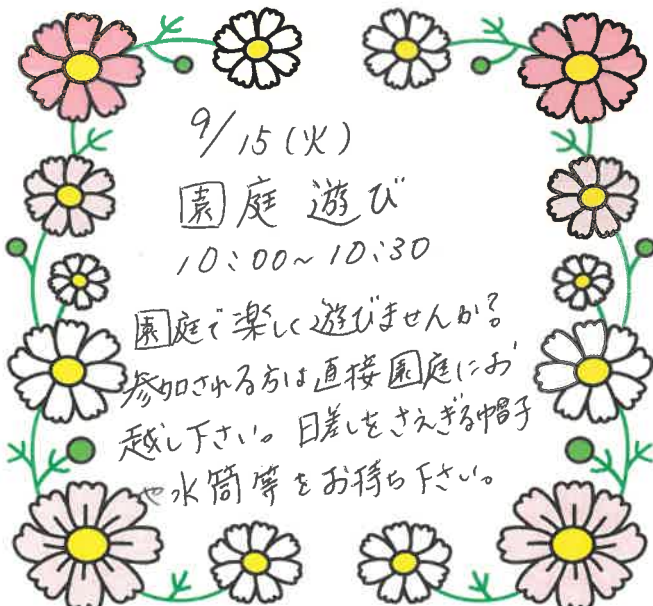 9/15(火)
園庭遊び
10:00~10:30
園庭で楽しく遊びませんか?
参加される方は直接園庭にお
越し下さい。日差しをさえぎる帽子
や水筒等をお持ち下さい。